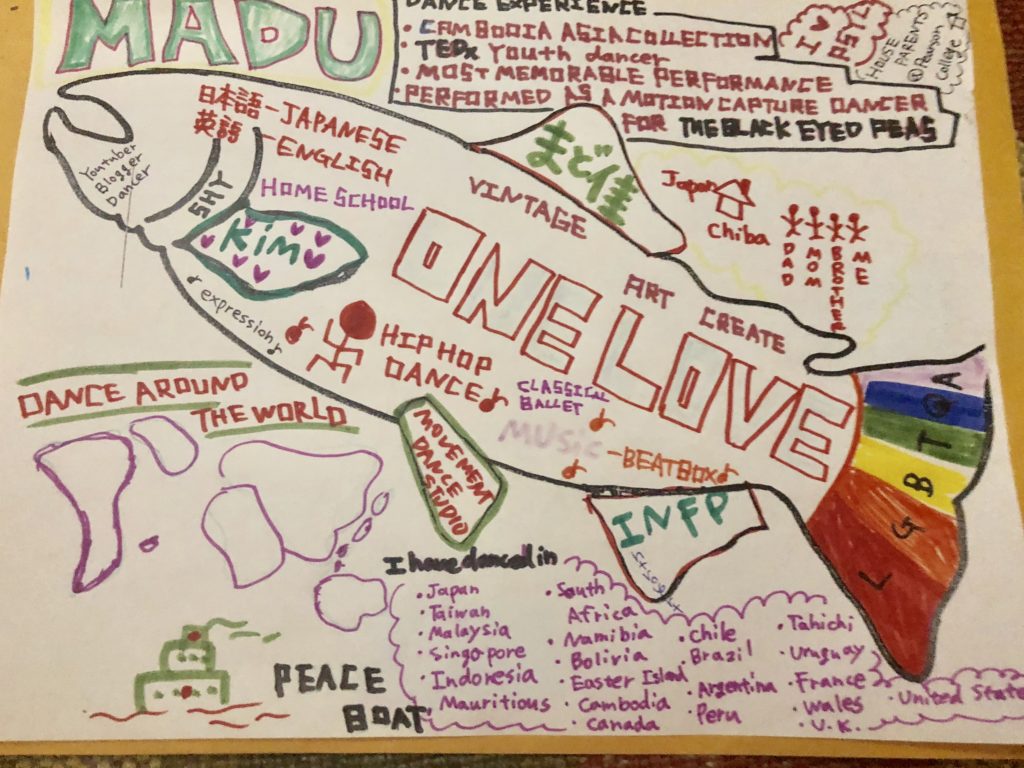 MADU
DANCE EXPERIENCE
• CAMBODIA ASIA COLLECTION
• TEDx Youth dancer
• MOST MEMORABLE PERFORMANCE
• PERFORMED AS A MOTION CAPTURE DANCER
FOR THE BLACK EYED PEAS
HOUSE
PARENTS
@Pearson
College
日本語-JAPANESE
英語-ENGLISH
HOME SCHOOL
Youtuber
Blogger
Dancer
SHY
Kim
expression
まど佳
VINTAGE
ONE LOVE
ART
CREATE
Japan
Chiba
DAD
MOM
BROTHER
ME
HIP HOP
DANCE
CLASSICAL
BALLET
MUSIC
-BEATBOX
L G B T Q A
DANCE AROUND
THE WORLD
MOVEMENT
DANCE
STUDIO
INFP
I have danced in
• Japan
• Taiwan
• Malaysia
• Singopore
• Indonesia
• Mauritious
• South
Africa
• Namibia
• Bolivia
• Easter Island
• Cambodia
• Canada
• Chile
• Brazil
• Argentina
• Peru
• Tahichi
• Uruguay
• France
• Wales
• U.K.
• United State
PEACE
BOAT